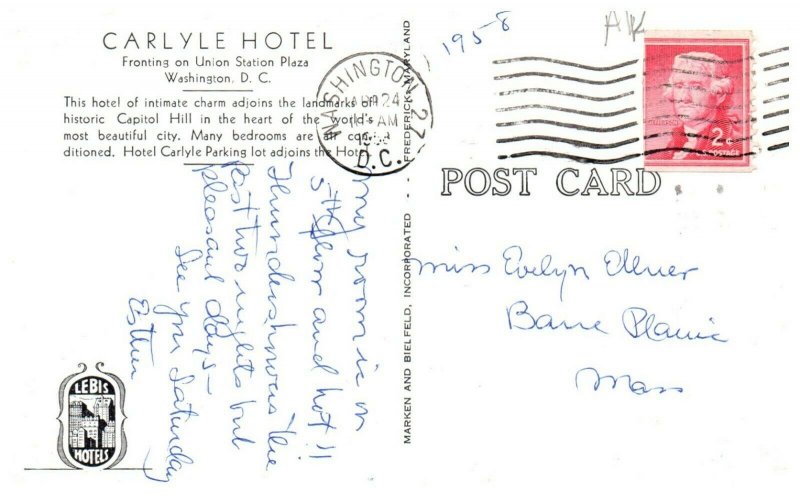 CARLYLE HOTEL
Fronting on Union Station Plaza
Washington, D. C.
This hotel of intimate charm adjoins the landmarks of
historic Capitol Hill in the heart of the world's
most beautiful city. Many bedrooms are air con-
ditioned. Hotel Carlyle Parking lot adjoins the Hotel.
WASHINGTON 27
24
AM
1958
D.C.
1958
AK
2¢
POST CARD
MARKEN AND BIELFELD, INCORPORATED -- FREDERICK, MARYLAND
My room is on
5th floor and hot!!
Thundershowers the
Past two nights but
pleasant days—
See you Saturday
Esther
Miss Evelyn
Barre Plains
Mass
LEBIS
HOTELS